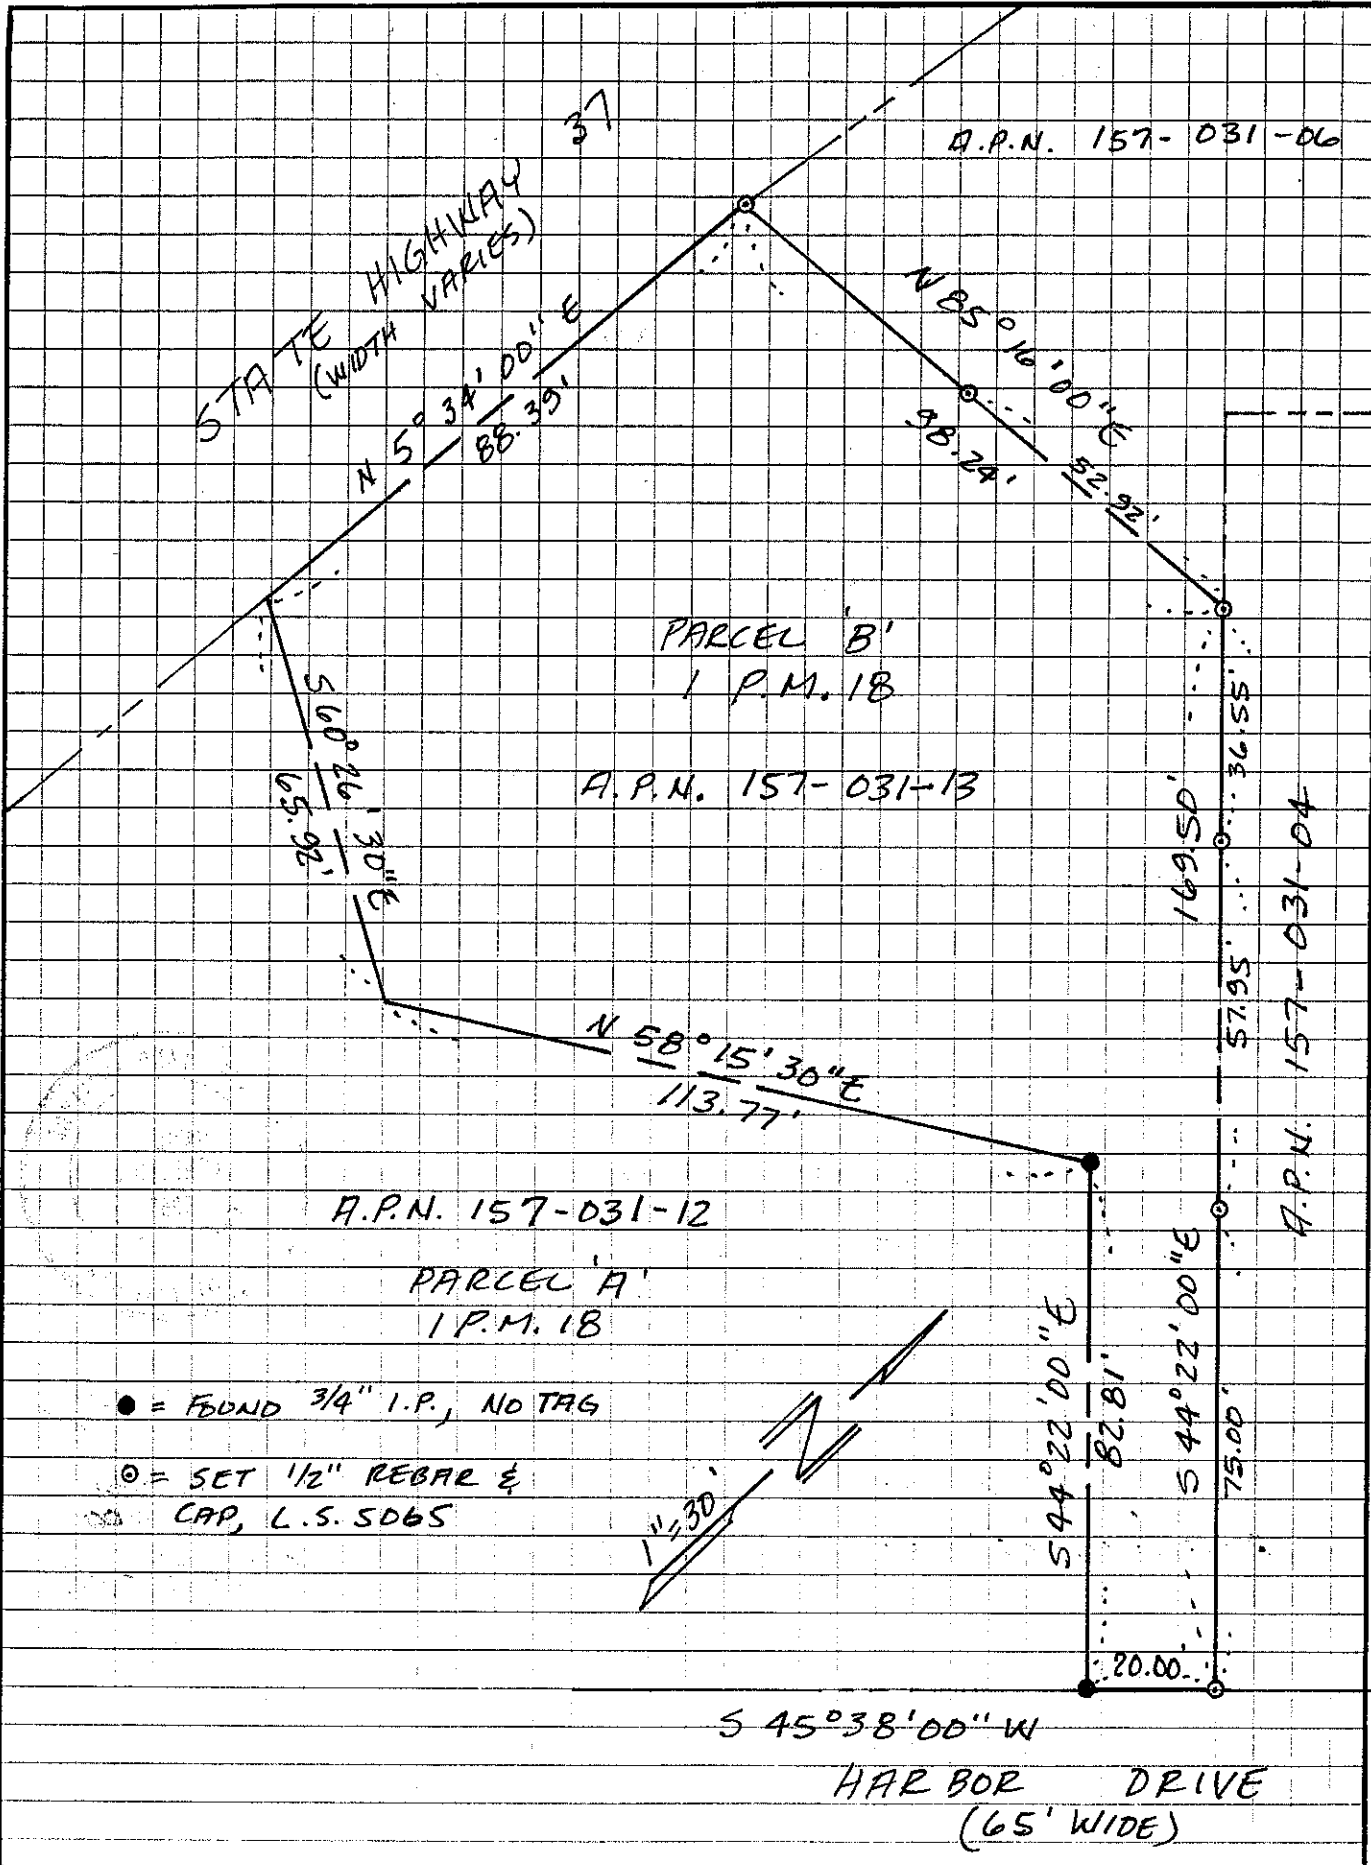 A.P.N. 157-031-06
STATE HIGHWAY 37
(WIDTH VARIES)
N 5° 34' 00" E
88.39'
N 85° 16' 00" E
98.24'
52.92'
PARCEL 'B'
1 P.M. 18
A.P.N. 157-031-13
36.55'
169.50'
57.95'
A.P.N. 157-031-04
S 60° 26' 30" E
65.92'
N 58° 15' 30" E
113.77'
A.P.N. 157-031-12
PARCEL 'A'
1 P.M. 18
● = FOUND 3/4" I.P., NO TAG
⊙ = SET 1/2" REBAR &
CAP, L.S. 5065
N
1"=30'
S 44° 22' 00" E
82.81'
S 44° 22' 00" E
75.00'
20.00
S 45° 38' 00" W
HARBOR DRIVE
(65' WIDE)